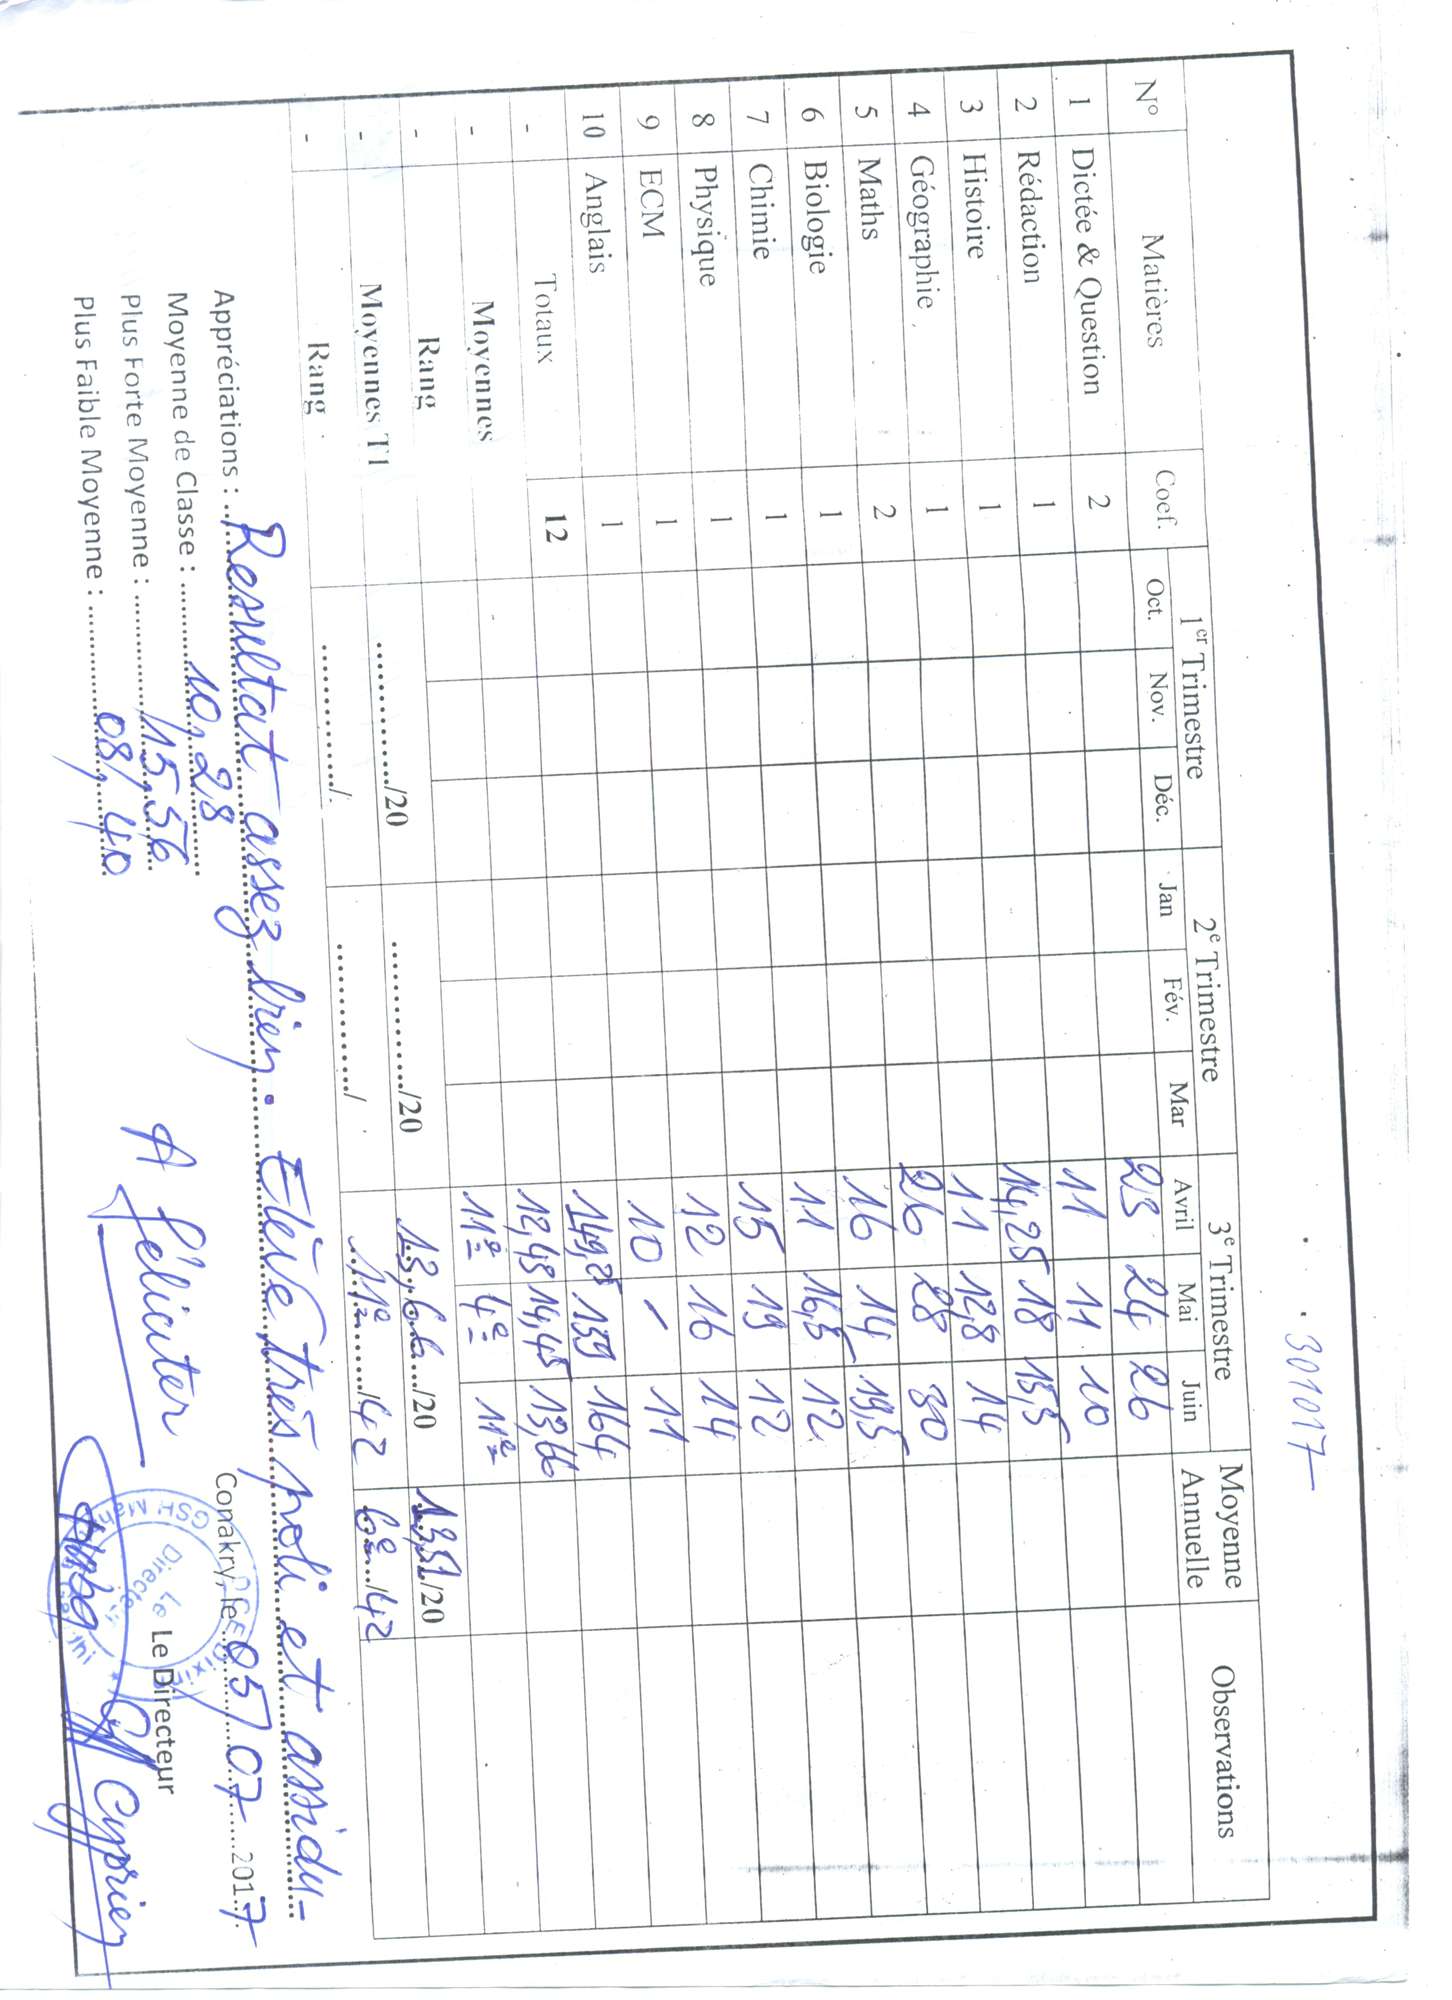 301017
N° Matières Coef. 1er Trimestre 2e Trimestre 3e Trimestre Moyenne Annuelle Observations
Oct. Nov. Déc. Jan Fév. Mar Avril Mai Juin
1 Dictée & Question 2 23 24 26
2 Rédaction 1 11 11 10
3 Histoire 1 14,25 18 13,5
4 Géographie 1 11 12,8 14
5 Maths 2 26 28 30
6 Biologie 1 16 14 19,5
7 Chimie 1 11 16,5 12
8 Physique 1 15 19 12
9 ECM 1 12 16 14
10 Anglais 1 10 - 11
- Totaux 12 149,25 159 164
- Moyennes 12,43 14,45 13,66
- Rang 11e 4e 11e
- Moyennes T1 ............/20 ............/20 13,66/20 13,51/20
- Rang ............/. ............/ 11e/42 6e/42
Appréciations : Resultat assez bien. Elève très poli et assidu-
Moyenne de Classe : 10,28
Plus Forte Moyenne : 15,56
Plus Faible Moyenne : 08,40
A féliciter
Conakry, le 05/07 2017
Le Directeur
Le Directeur
Cyprien